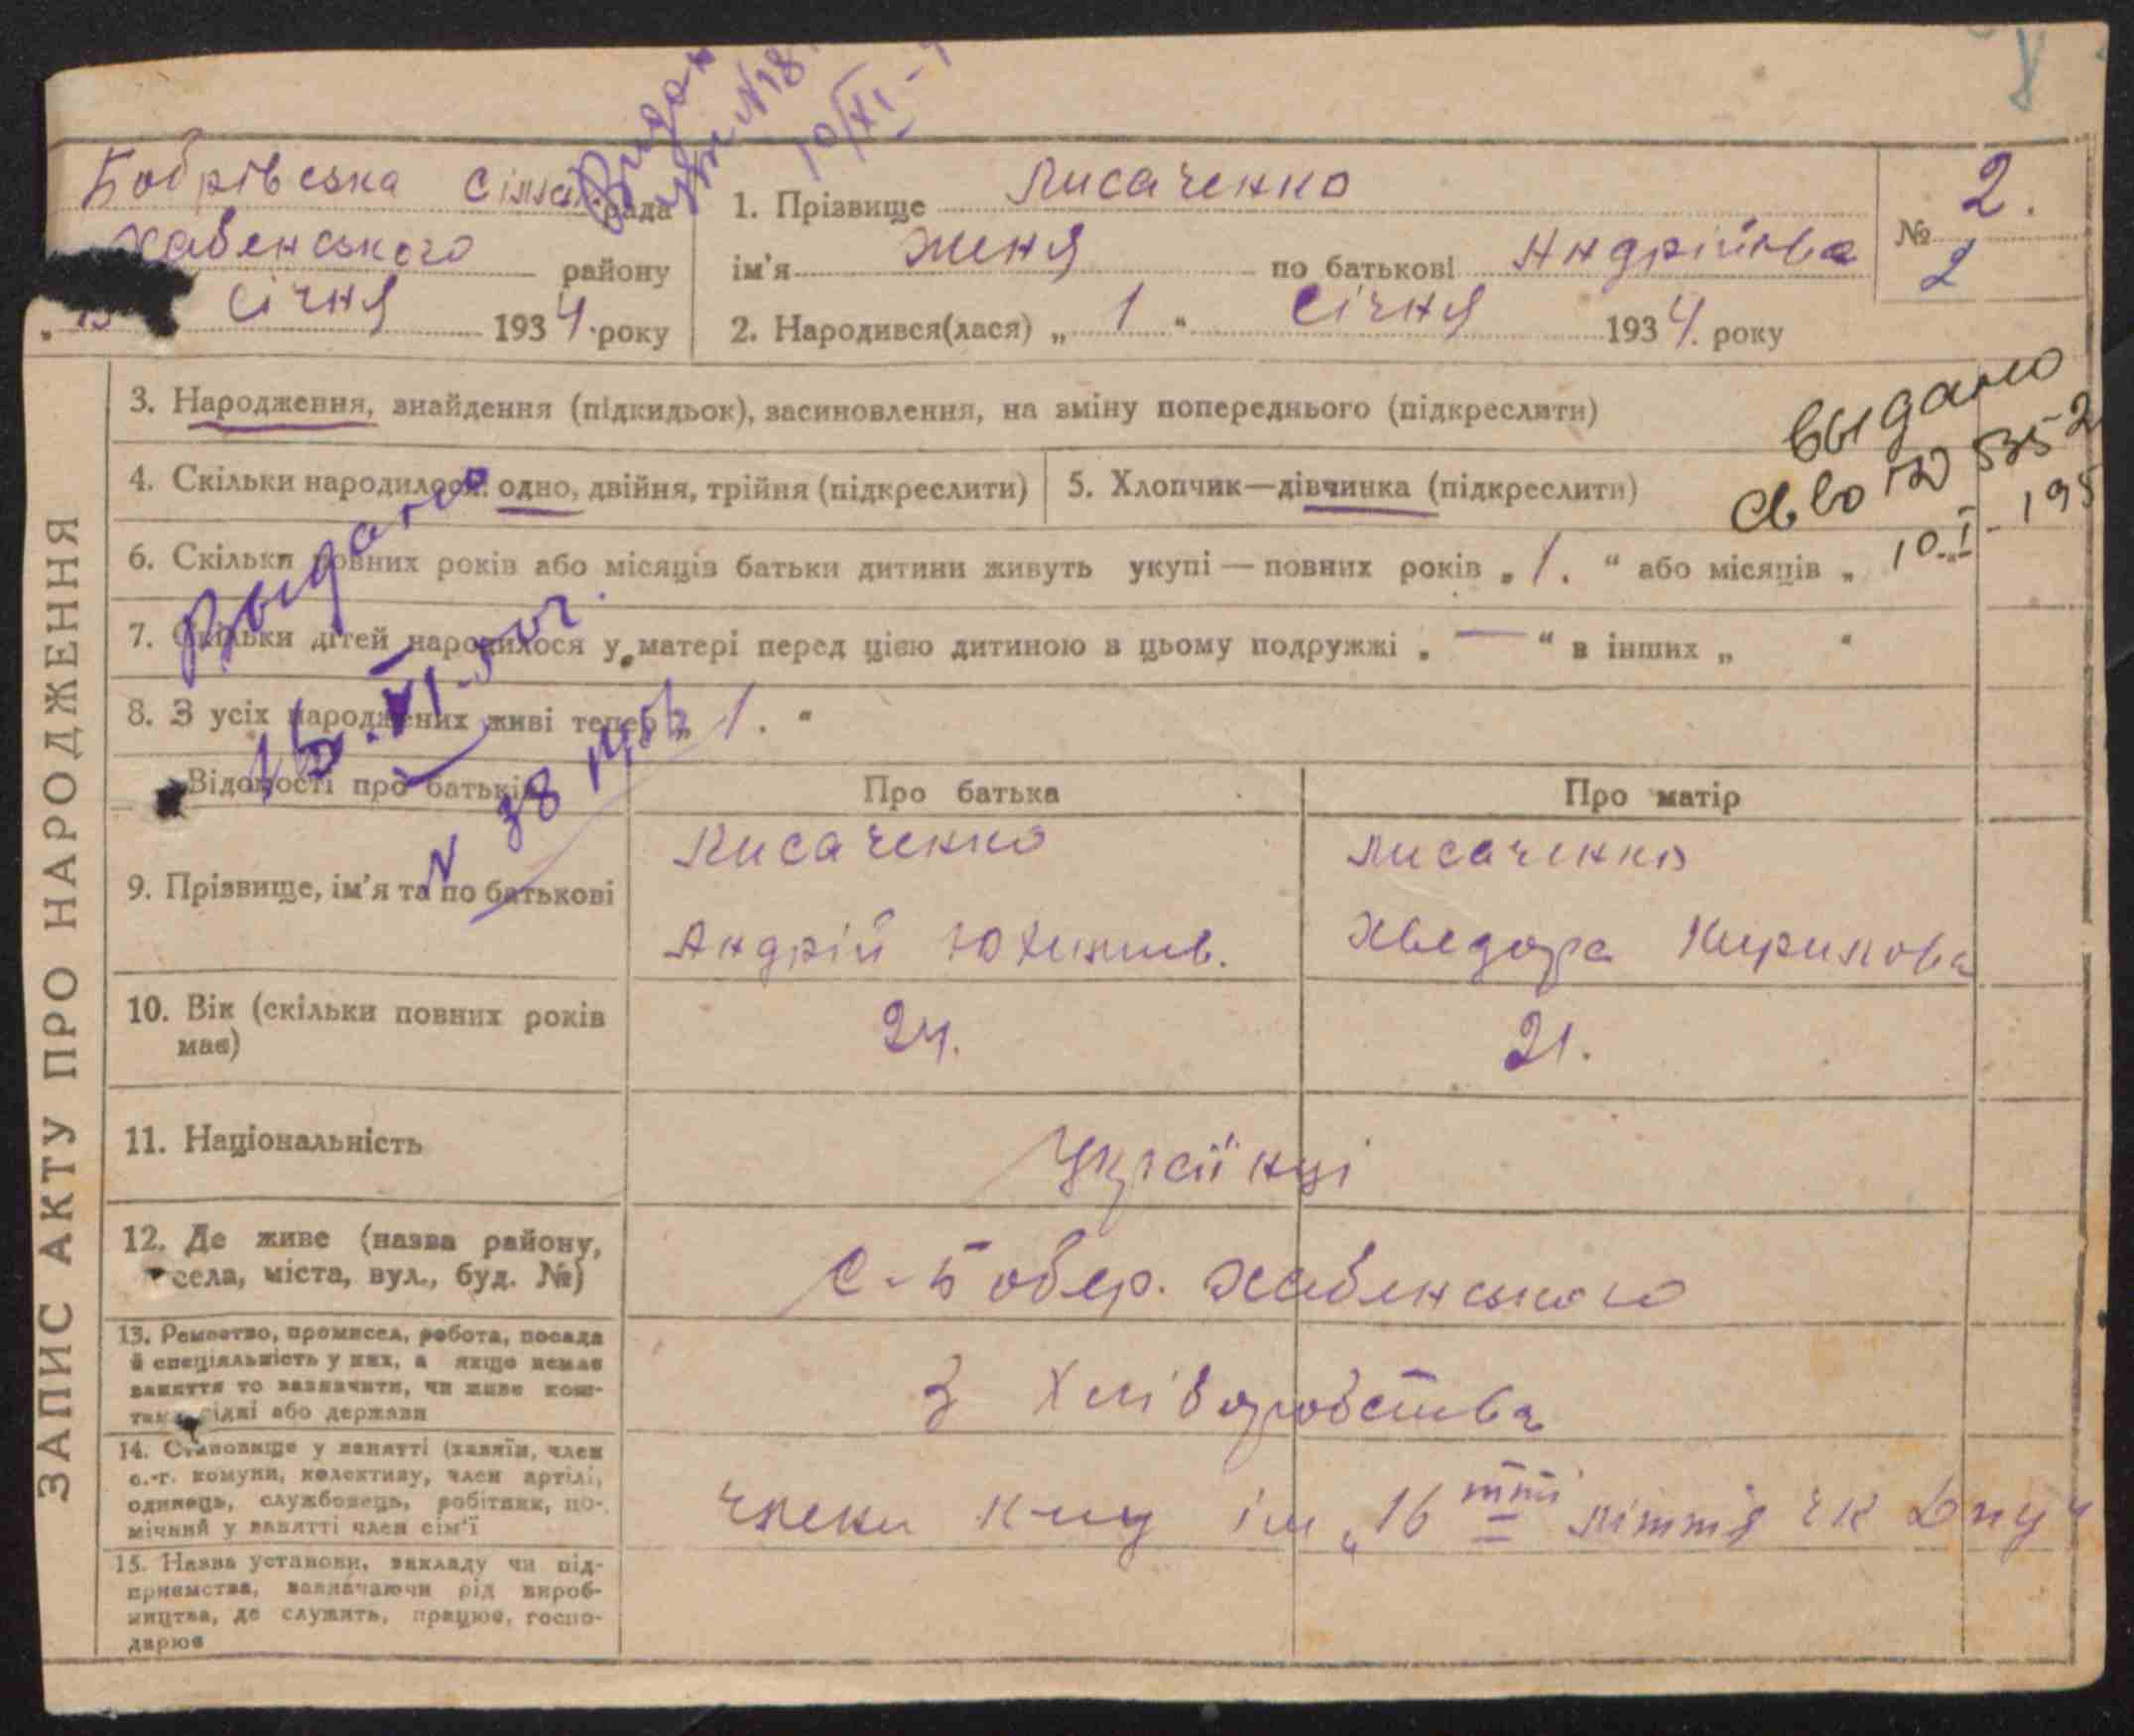 Бобрівська сільська рада
Хабенського району
" 15 " січня 1934 року
1. Прізвище Лисаченко
ім'я Женя по батькові Андрійова
2. Народився(лася) „ 1 “ січня 1934. року
№ 2.
2
Видан
10/XI
ЗАПИС АКТУ ПРО НАРОДЖЕННЯ
3. Народження, знайдення (підкидьок), засиновлення, на зміну попереднього (підкреслити)
выдано
4. Скільки народилося: одно, двійня, трійня (підкреслити)
5. Хлопчик—дівчинка (підкреслити)
10.I-195
6. Скільки повних років або місяців батьки дитини живуть укупі — повних років „ 1. “ або місяців „
Выдано
7. Скільки дітей народилося у матері перед цією дитиною в цьому подружжі „ — “ в інших „ “
16.VI-
8. З усіх народжених живі тепер „ 1. “
N 38
Відомості про батьків
Про батька
Про матір
9. Прізвище, ім'я та по батькові
Лисаченко
Андрій Юхимів.
Лисаченко
Хведора Кирилова
10. Вік (скільки повних років має)
24.
21.
11. Національність
Українці
12. Де живе (назва району,
села, міста, вул., буд. №)
с-Бобер. Хабенського
13. Ремество, промисел, робота, посада
й спеціяльність у них, а якщо немає
заняття то зазначити, чи живе кош-
тами рідні або держави
З Хліборобства
14. Становище у занятті (хазяїн, член
с.-г. комуни, колективу, член артілі,
одинець, службовець, робітник, по-
мічний у занятті член сім'ї
члени к-пу ім „16 тті ліття ЧК ДПУ“
15. Назва установи, закладу чи під-
приємства, зазначаючи рід вироб-
ництва, де служить, працює, госпо-
дарює